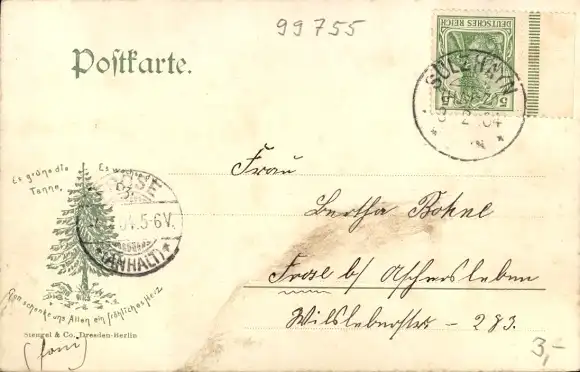 99755
Postkarte.
DEUTSCHES REICH
5 5
SÜLZHAYN
Es grüne die
Tanne,
Es wachse
FROSE
04.5-6V.
*(ANHALT)*
Gott schenke uns Allen ein fröhliches Herz
Stengel & Co., Dresden-Berlin
Frau
Bertha Bohne
Frose b/ Aschersleben
Wilsleberstr - 283.
3,-